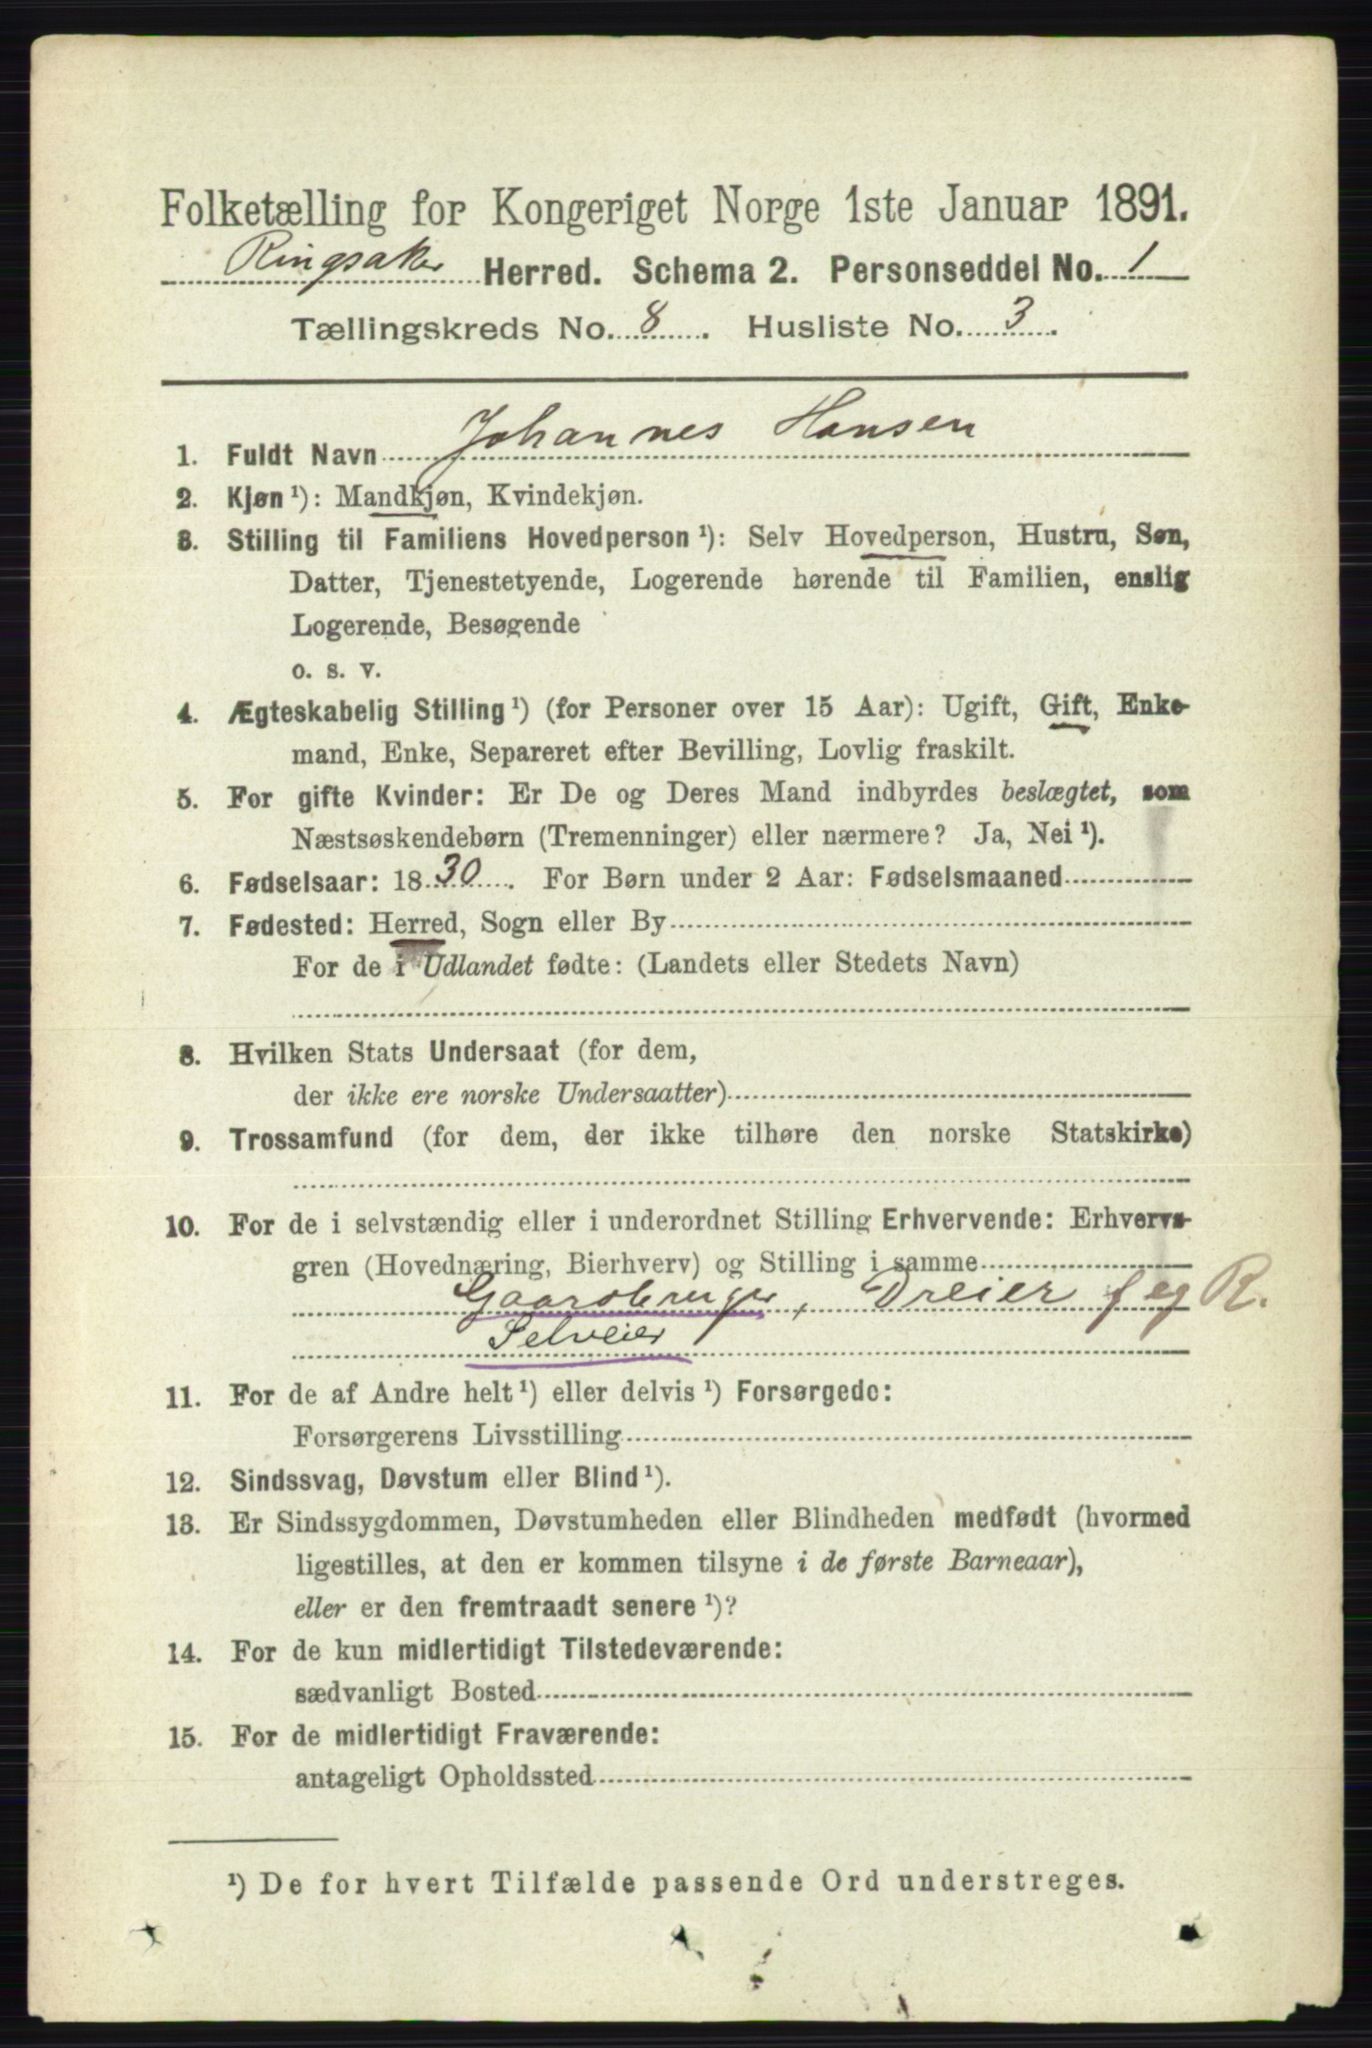 Folketælling for Kongeriget Norge 1ste Januar 1891.
Ringsaker Herred. Schema 2. Personseddel No. 1
Tællingskreds No. 8. Husliste No. 3.
1. Fuldt Navn Johannes Hansen
2. Kjøn ¹): Mandkjøn, Kvindekjøn.
3. Stilling til Familiens Hovedperson ¹): Selv Hovedperson, Hustru, Søn,
Datter, Tjenestetyende, Logerende hørende til Familien, enslig
Logerende, Besøgende
o. s. v.
4. Ægteskabelig Stilling ¹) (for Personer over 15 Aar): Ugift, Gift, Enke-
mand, Enke, Separeret efter Bevilling, Lovlig fraskilt.
5. For gifte Kvinder: Er De og Deres Mand indbyrdes beslægtet, som
Næstsøskendebørn (Tremenninger) eller nærmere? Ja, Nei ¹).
6. Fødselsaar: 1830. For Børn under 2 Aar: Fødselsmaaned
7. Fødested: Herred, Sogn eller By
For de i Udlandet fødte: (Landets eller Stedets Navn)
8. Hvilken Stats Undersaat (for dem,
der ikke ere norske Undersaatter)
9. Trossamfund (for dem, der ikke tilhøre den norske Statskirke)
10. For de i selvstændig eller i underordnet Stilling Erhvervende: Erhvervs-
gren (Hovednæring, Bierhverv) og Stilling i samme
Gaardbruger, Dreier f eg R.
Selveier
11. For de af Andre helt ¹) eller delvis ¹) Forsørgede:
Forsørgerens Livsstilling
12. Sindssvag, Døvstum eller Blind ¹).
13. Er Sindssygdommen, Døvstumheden eller Blindheden medfødt (hvormed
ligestilles, at den er kommen tilsyne i de første Barneaar),
eller er den fremtraadt senere ¹)?
14. For de kun midlertidigt Tilstedeværende:
sædvanligt Bosted
15. For de midlertidigt Fraværende:
antageligt Opholdssted
¹) De for hvert Tilfælde passende Ord understreges.